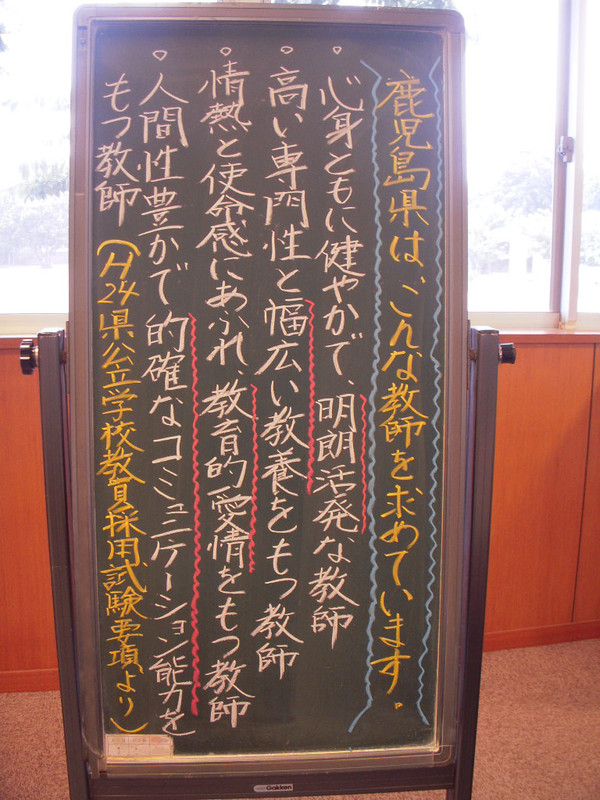 鹿児島県は、こんな教師を求めています。
○心身ともに健やかで、明朗活発な教師
○高い専門性と幅広い教養をもつ教師
○情熱と使命感にあふれ、教育的愛情をもつ教師
○人間性豊かで的確なコミュニケーション能力を
もつ教師 (H24県公立学校教員採用試験要項より)
Gakken